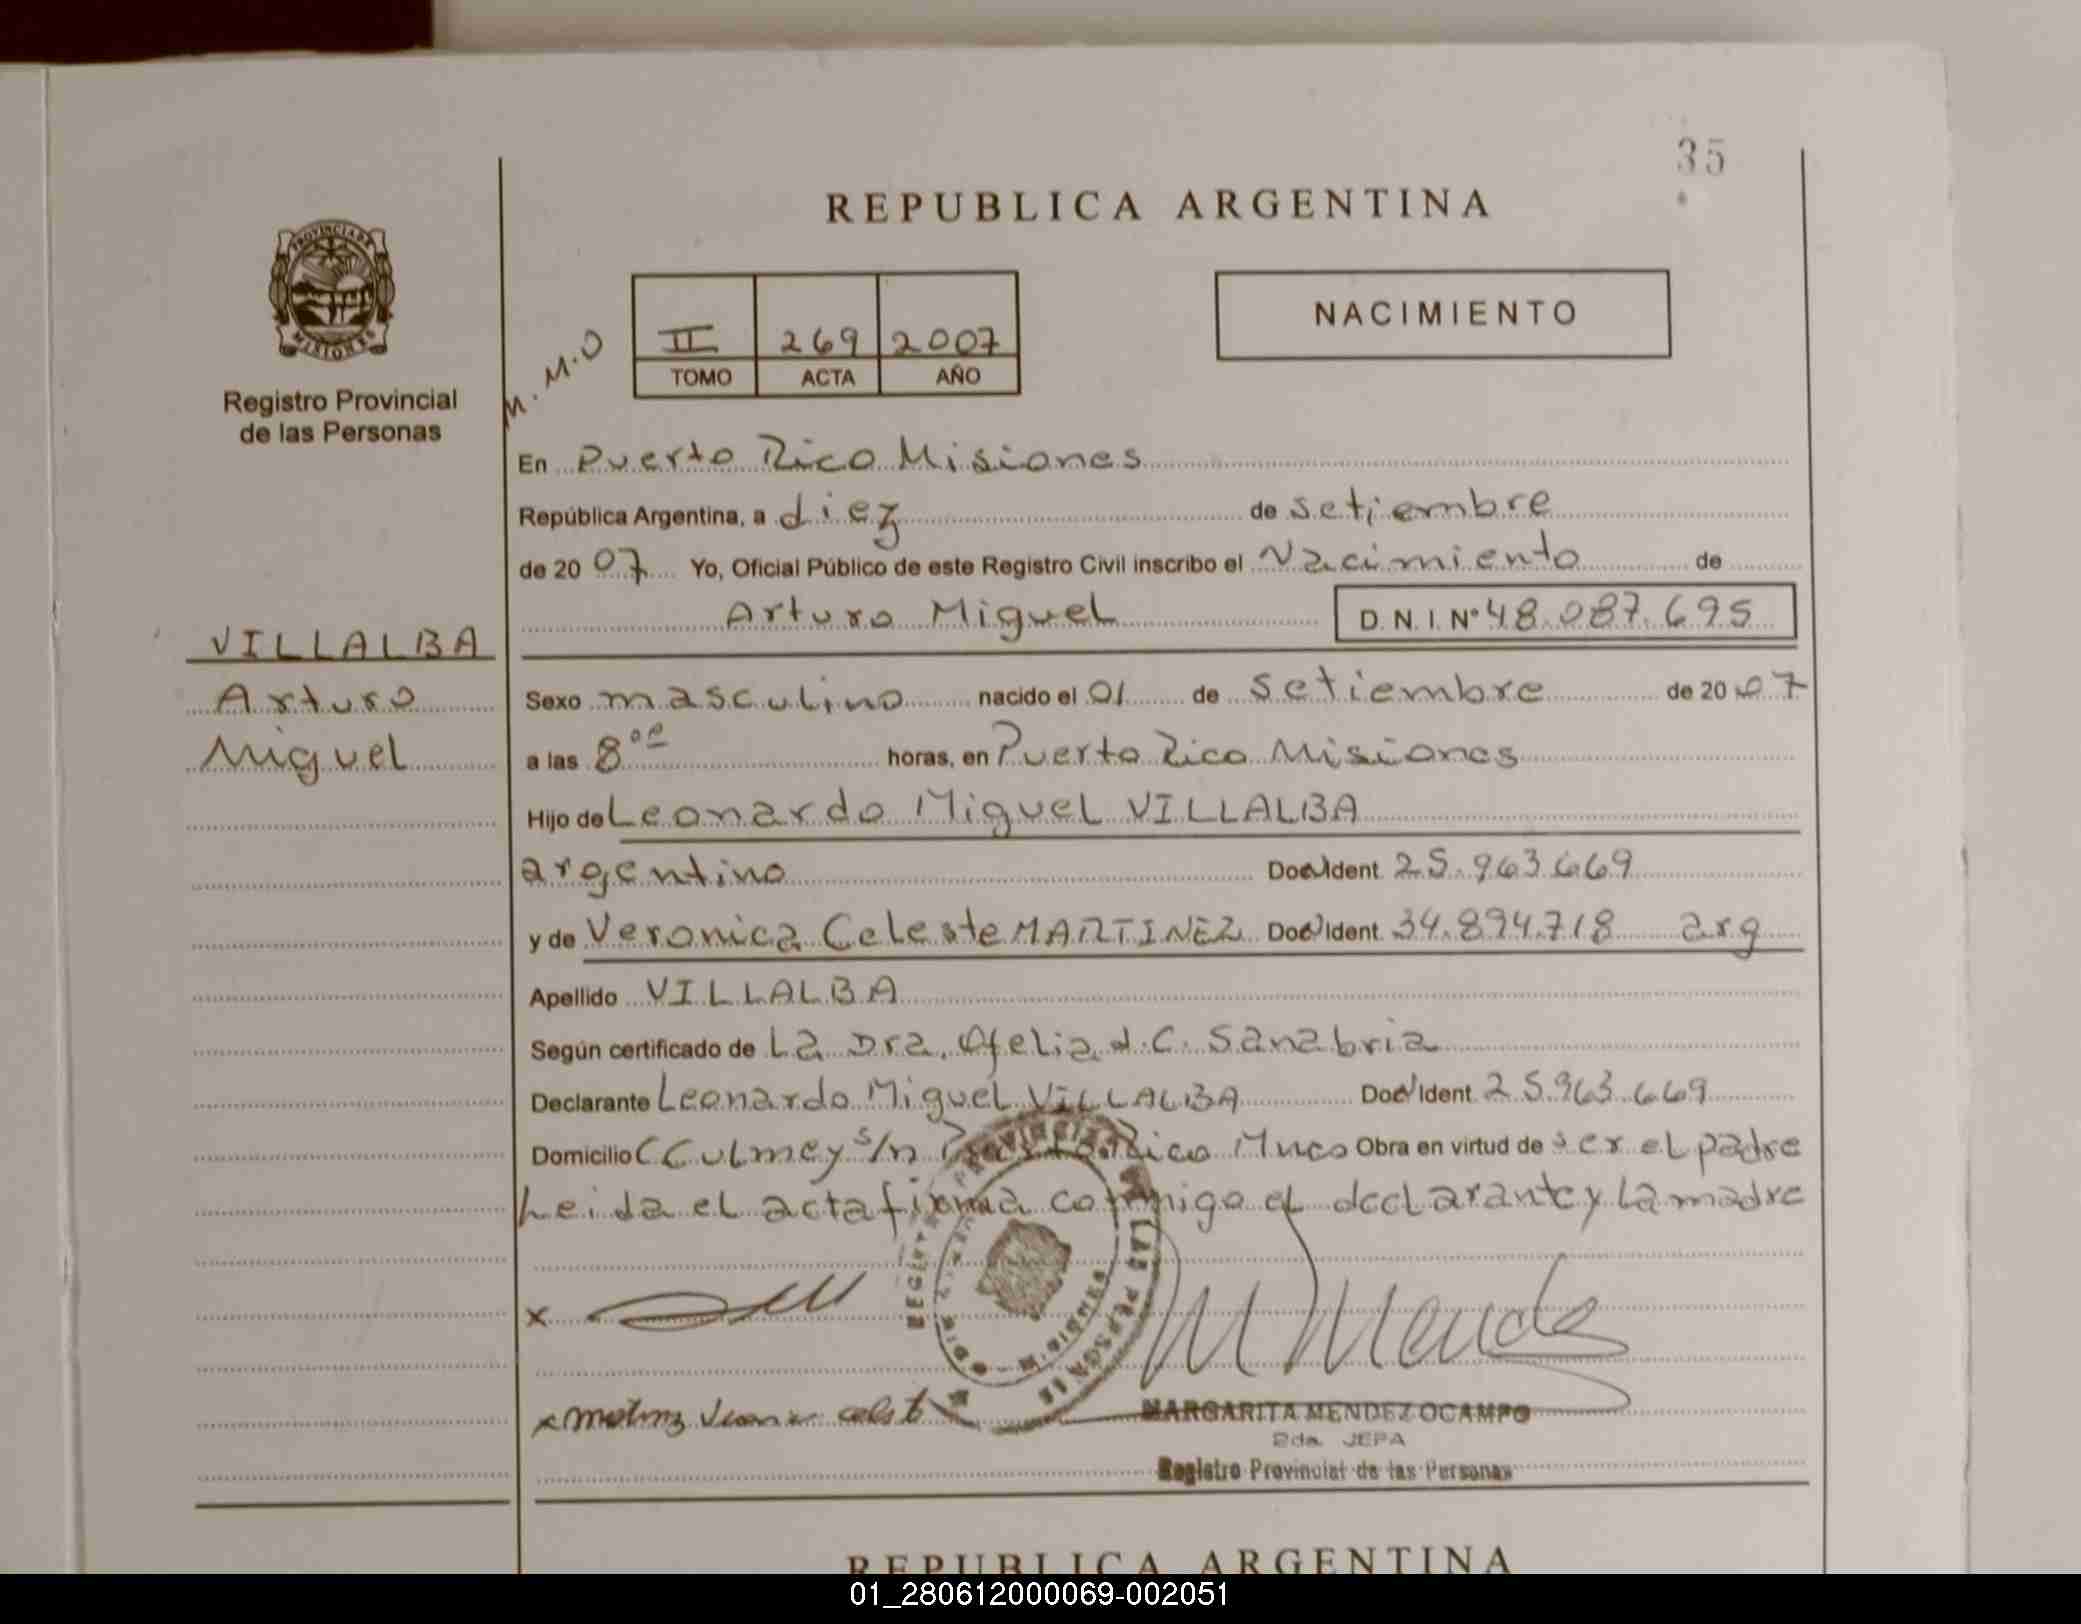 35
REPUBLICA ARGENTINA
PROVINCIA DE
MISIONES
Registro Provincial
de las Personas
M.M.O
II 269 2007
TOMO ACTA AÑO
NACIMIENTO
En Puerto Rico Misiones
República Argentina, a diez de setiembre
de 2007 Yo, Oficial Público de este Registro Civil inscribo el Nacimiento de
Arturo Miguel D.N.I. Nº 48.087.695
VILLALBA
Arturo
Miguel
Sexo masculino nacido el 01 de setiembre de 2007
a las 8 horas, en Puerto Rico Misiones
Hijo de Leonardo Miguel VILLALBA
argentino Doc Ident. 25.963.669
y de Veronica Celeste MARTINEZ Doc Ident. 34.894.718 arg
Apellido VILLALBA
Según certificado de La Dra. Ofelia d.C. Sanabria
Declarante Leonardo Miguel VILLALBA Doc Ident. 25.963.669
Domicilio C Culmey s/n Puerto Rico Obra en virtud de ser el padre
Leida el acta firma conmigo el declarante y la madre
x
REGISTRO PROVINCIAL DE LAS PERSONAS
MARGARITA MENDEZ OCAMPO
2da. JEFA
Registro Provincial de las Personas
REPUBLICA ARGENTINA
01_280612000069-002051